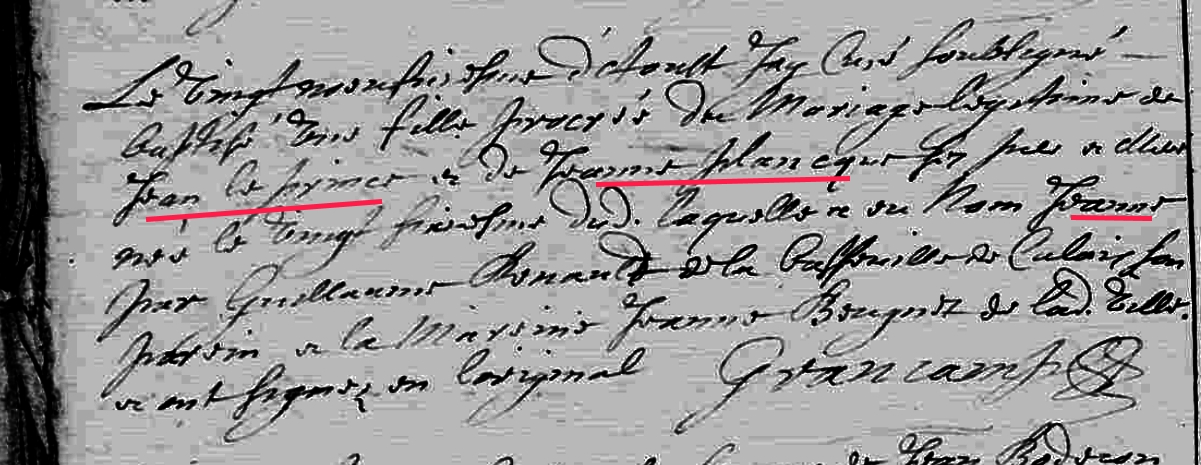 Le vingt neufuiesme d'Aoust Jay Curé soubsigné
baptisé une fille procréé du Mariage legitime de
Jean le prince et de Jeanne plancque ses pere et mere
née le vingt  dud. laquelle a eu Nom Jeanne
par Guillaume Renault de la basse ville de Calais son
parein et la Mareine Jeanne Bouguet de lad. ville.
et ont signez en loriginal Grancamp
de Jean